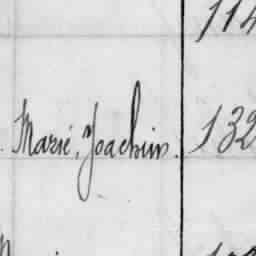 114
Marié, Joachim. 132